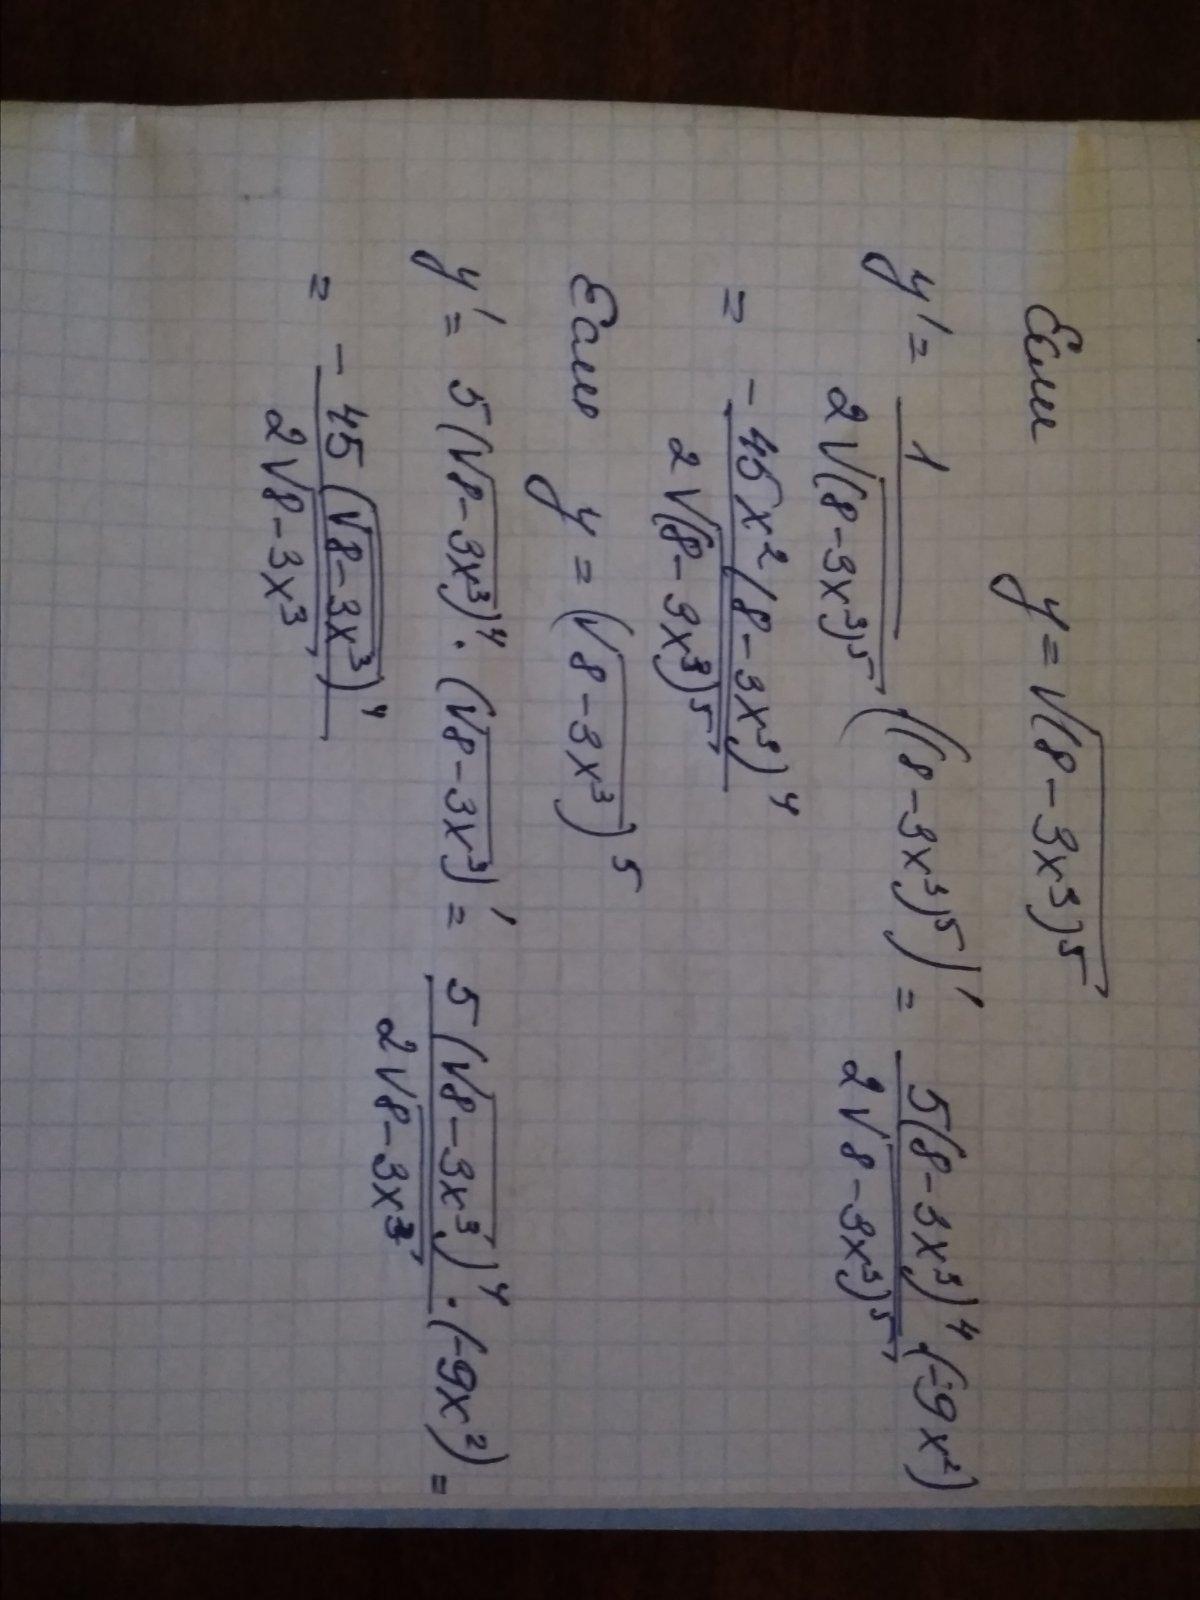 Если y = √(8-3x³)⁵
y' = 1/(2√(8-3x³)⁵) ((8-3x³)⁵)' = 5(8-3x³)⁴·(-9x²)/(2√8-3x³)⁵)
= -45x²(8-3x³)⁴/(2√(8-3x³)⁵)
Если y = (√8-3x³)⁵
y' = 5(√8-3x³)⁴·(√8-3x³)' = 5(√8-3x³)⁴/(2√8-3x³)·(-9x²) =
= -45(√8-3x³)⁴/(2√8-3x³)